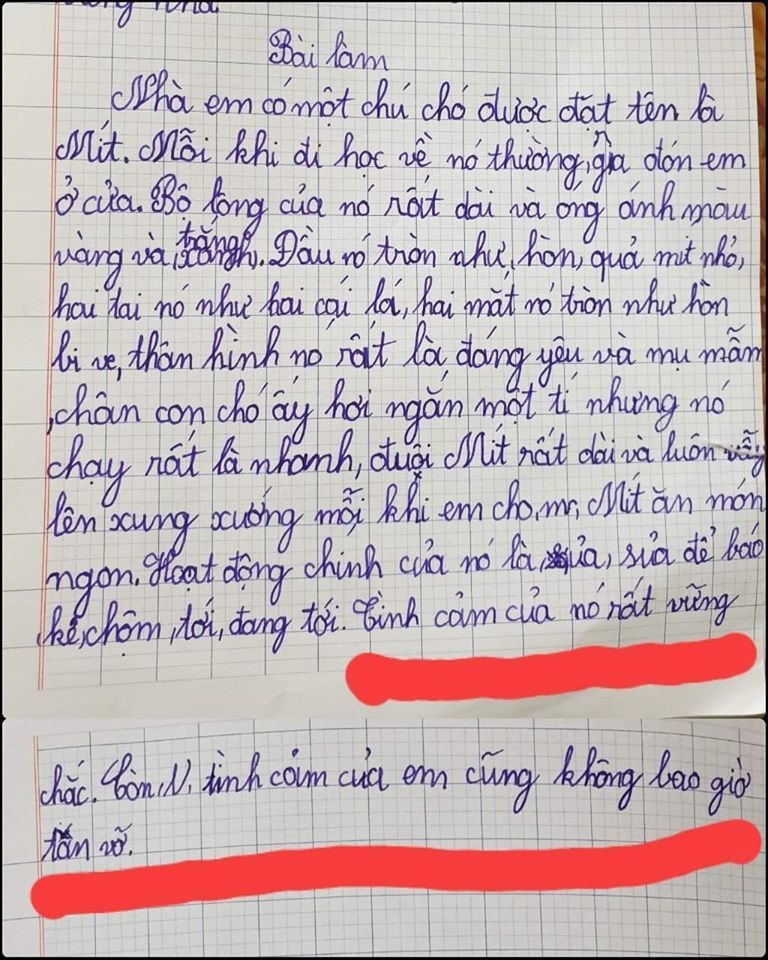 Bài làm
Nhà em có một chú chó được đặt tên là
Mít. Mỗi khi đi học về nó thường, ra đón em
ở cửa. Bộ lông của nó rất dài và óng ánh màu
vàng và, trắng. Đầu nó tròn như, hòn, quả mít nhỏ,
hai tai nó như hai cái lá, hai mắt nó tròn như hòn
bi ve, thân hình nó rất là, đáng yêu và mụ mẫm
, chân con chó ấy hơi ngắn một tí nhưng nó
chạy rất là nhanh, đuôi Mít rất dài và luôn vẫy
lên xung xuống mỗi khi em cho, mí, Mít ăn món
ngon. Hoạt động chính của nó là, sủa, sủa để báo
kẻ, chộm, tới, đang tới. Tình cảm của nó rất vững
chắc. Còn, N, tình cảm của em cũng không bao giờ
tan vỡ.